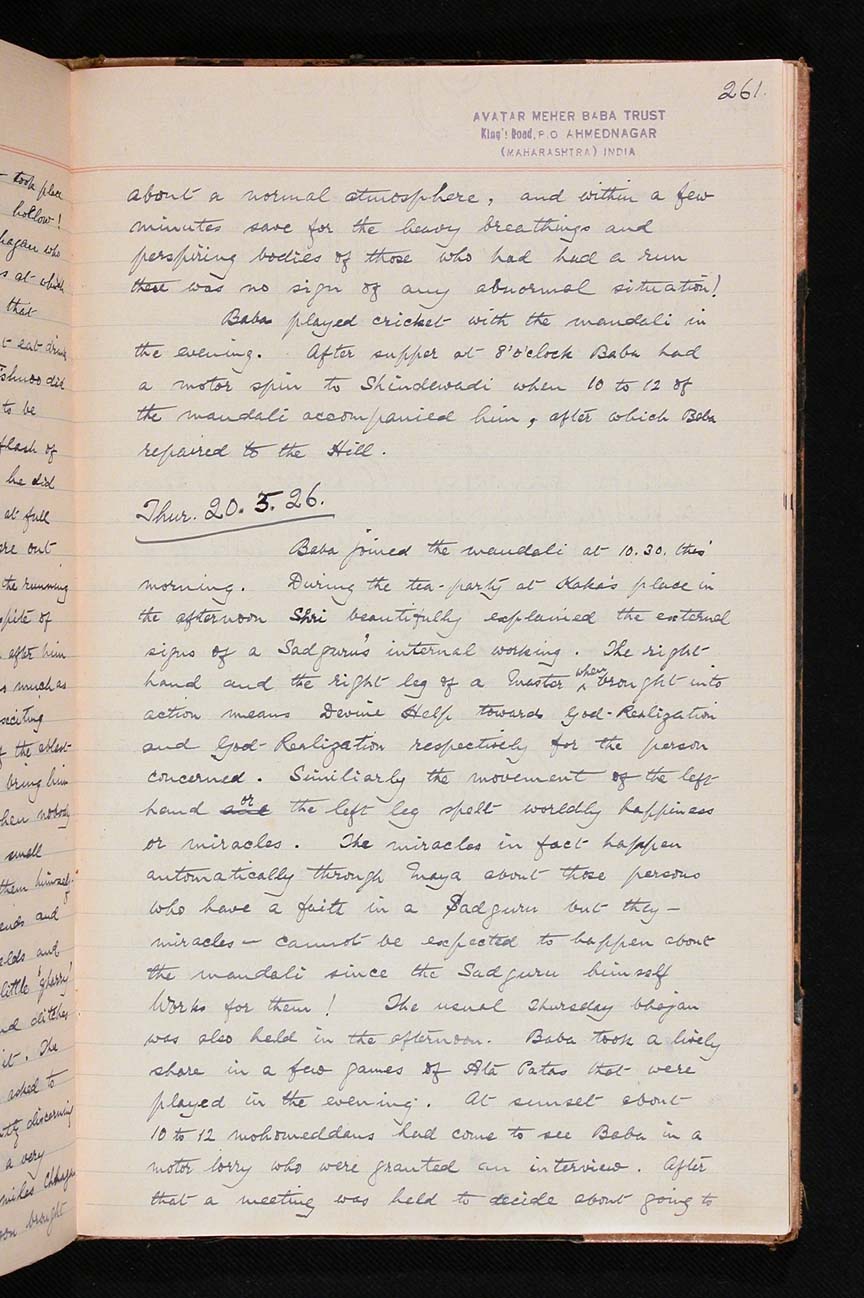 261.
AVATAR MEHER BABA TRUST
King's Road, P.O AHMEDNAGAR
(MAHARASHTRA) INDIA
about a normal atmosphere, and within a few
minutes save for the heavy breathings and
perspiring bodies of those who had had a run
there was no sign of any abnormal situation!
Baba played cricket with the mandali in
the evening. After supper at 8'o'clock Baba had
a motor spin to Shindewadi when 10 to 12 of
the mandali accompanied him, after which Baba
repaired to the Hill.
Thur. 20. 5. 26.
Baba joined the mandali at 10.30. this
morning. During the tea-party at Kaka's place in
the afternoon Shri beautifully explained the external
signs of a Sadguru's internal working. The right
hand and the right leg of a Master when brought into
action means Devine Help towards God-Realization
and God-Realization respectively for the person
concerned. Similiarly the movement of the left
hand or the left leg spelt worldly happiness
or miracles. The miracles in fact happen
automatically through Maya about those persons
who have a faith in a Sadguru but they —
miracles — cannot be expected to happen about
the mandali since the Sadguru himself
Works for them! The usual Thursday bhajan
was also held in the afternoon. Baba took a lively
share in a few games of Ata Patas that were
played in the evening. At sunset about
10 to 12 mohomeddans had come to see Baba in a
motor lorry who were granted an interview. After
that a meeting was held to decide about going to
took place
hollow!
who
s at which
that
t eat drink
did
to be
flash of
he did
at full
are out
the running
spite of
after him
s much as
of the
bring him
when nobody
small
them himself
ends and
fields and
little 'gharry'
nd ditches
it. The
asked to
discerning
a very
brought